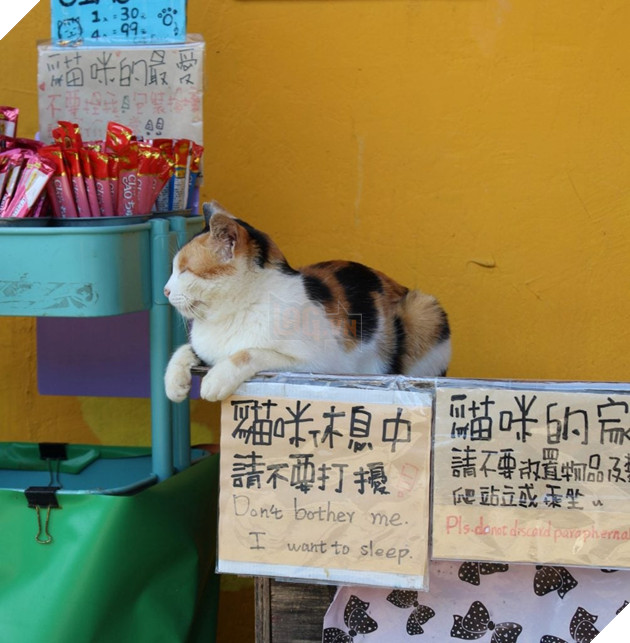 1 = 30.
4 = 99.
貓咪的最愛
不要
Ciao
貓咪休息中
請不要打擾
Don't bother me.
I want to sleep.
貓咪的家
請不要放置物品及
爬站立或乘坐
Pls donot discard paraphernal